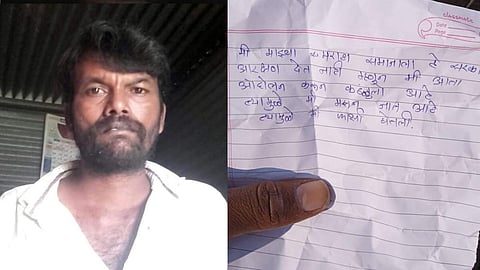 classmate
Date
Page
मी माझ्या मराठा समाजाला हे सरकार
आरक्षण देत नाही म्हणून मी आता
आंदोलन करून कंटाळलो आहे
त्यामुळे मी मरून जात आहे
त्यामुळे मी फाशी घेतली.